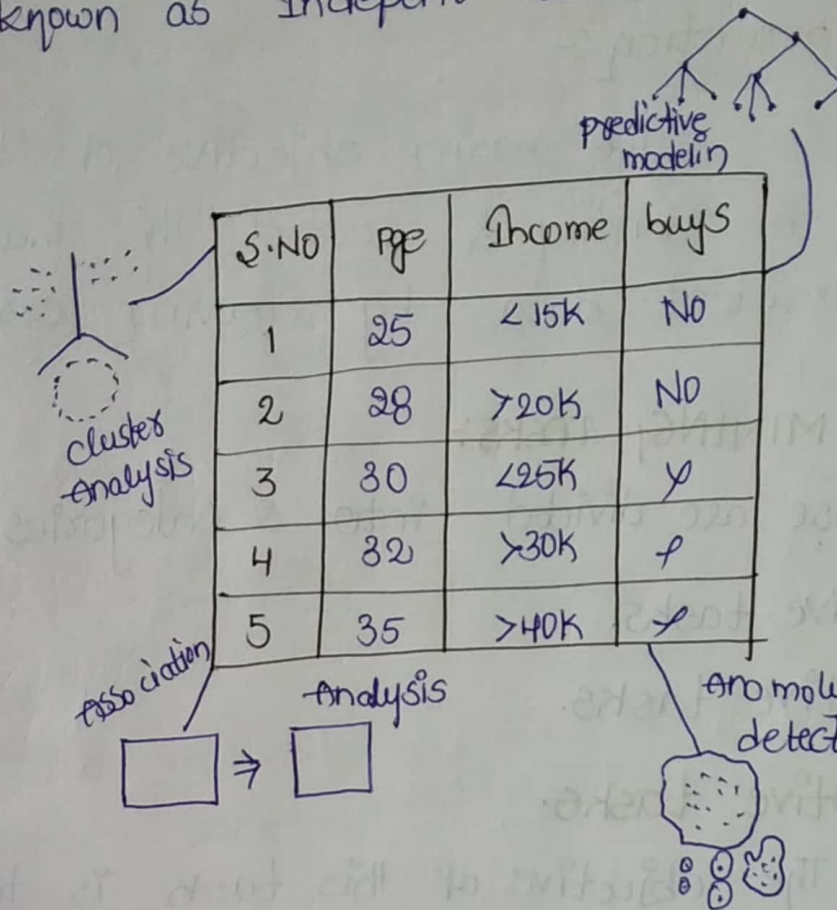 known as Indepen
predictive
modelin
S.NO Age Income buys
1 25 <15K NO
2 28 >20K NO
3 30 <25K Y
4 32 >30K Y
5 35 >40K Y
cluster
Analysis
Association Analysis
⇒
Anomoly
detect